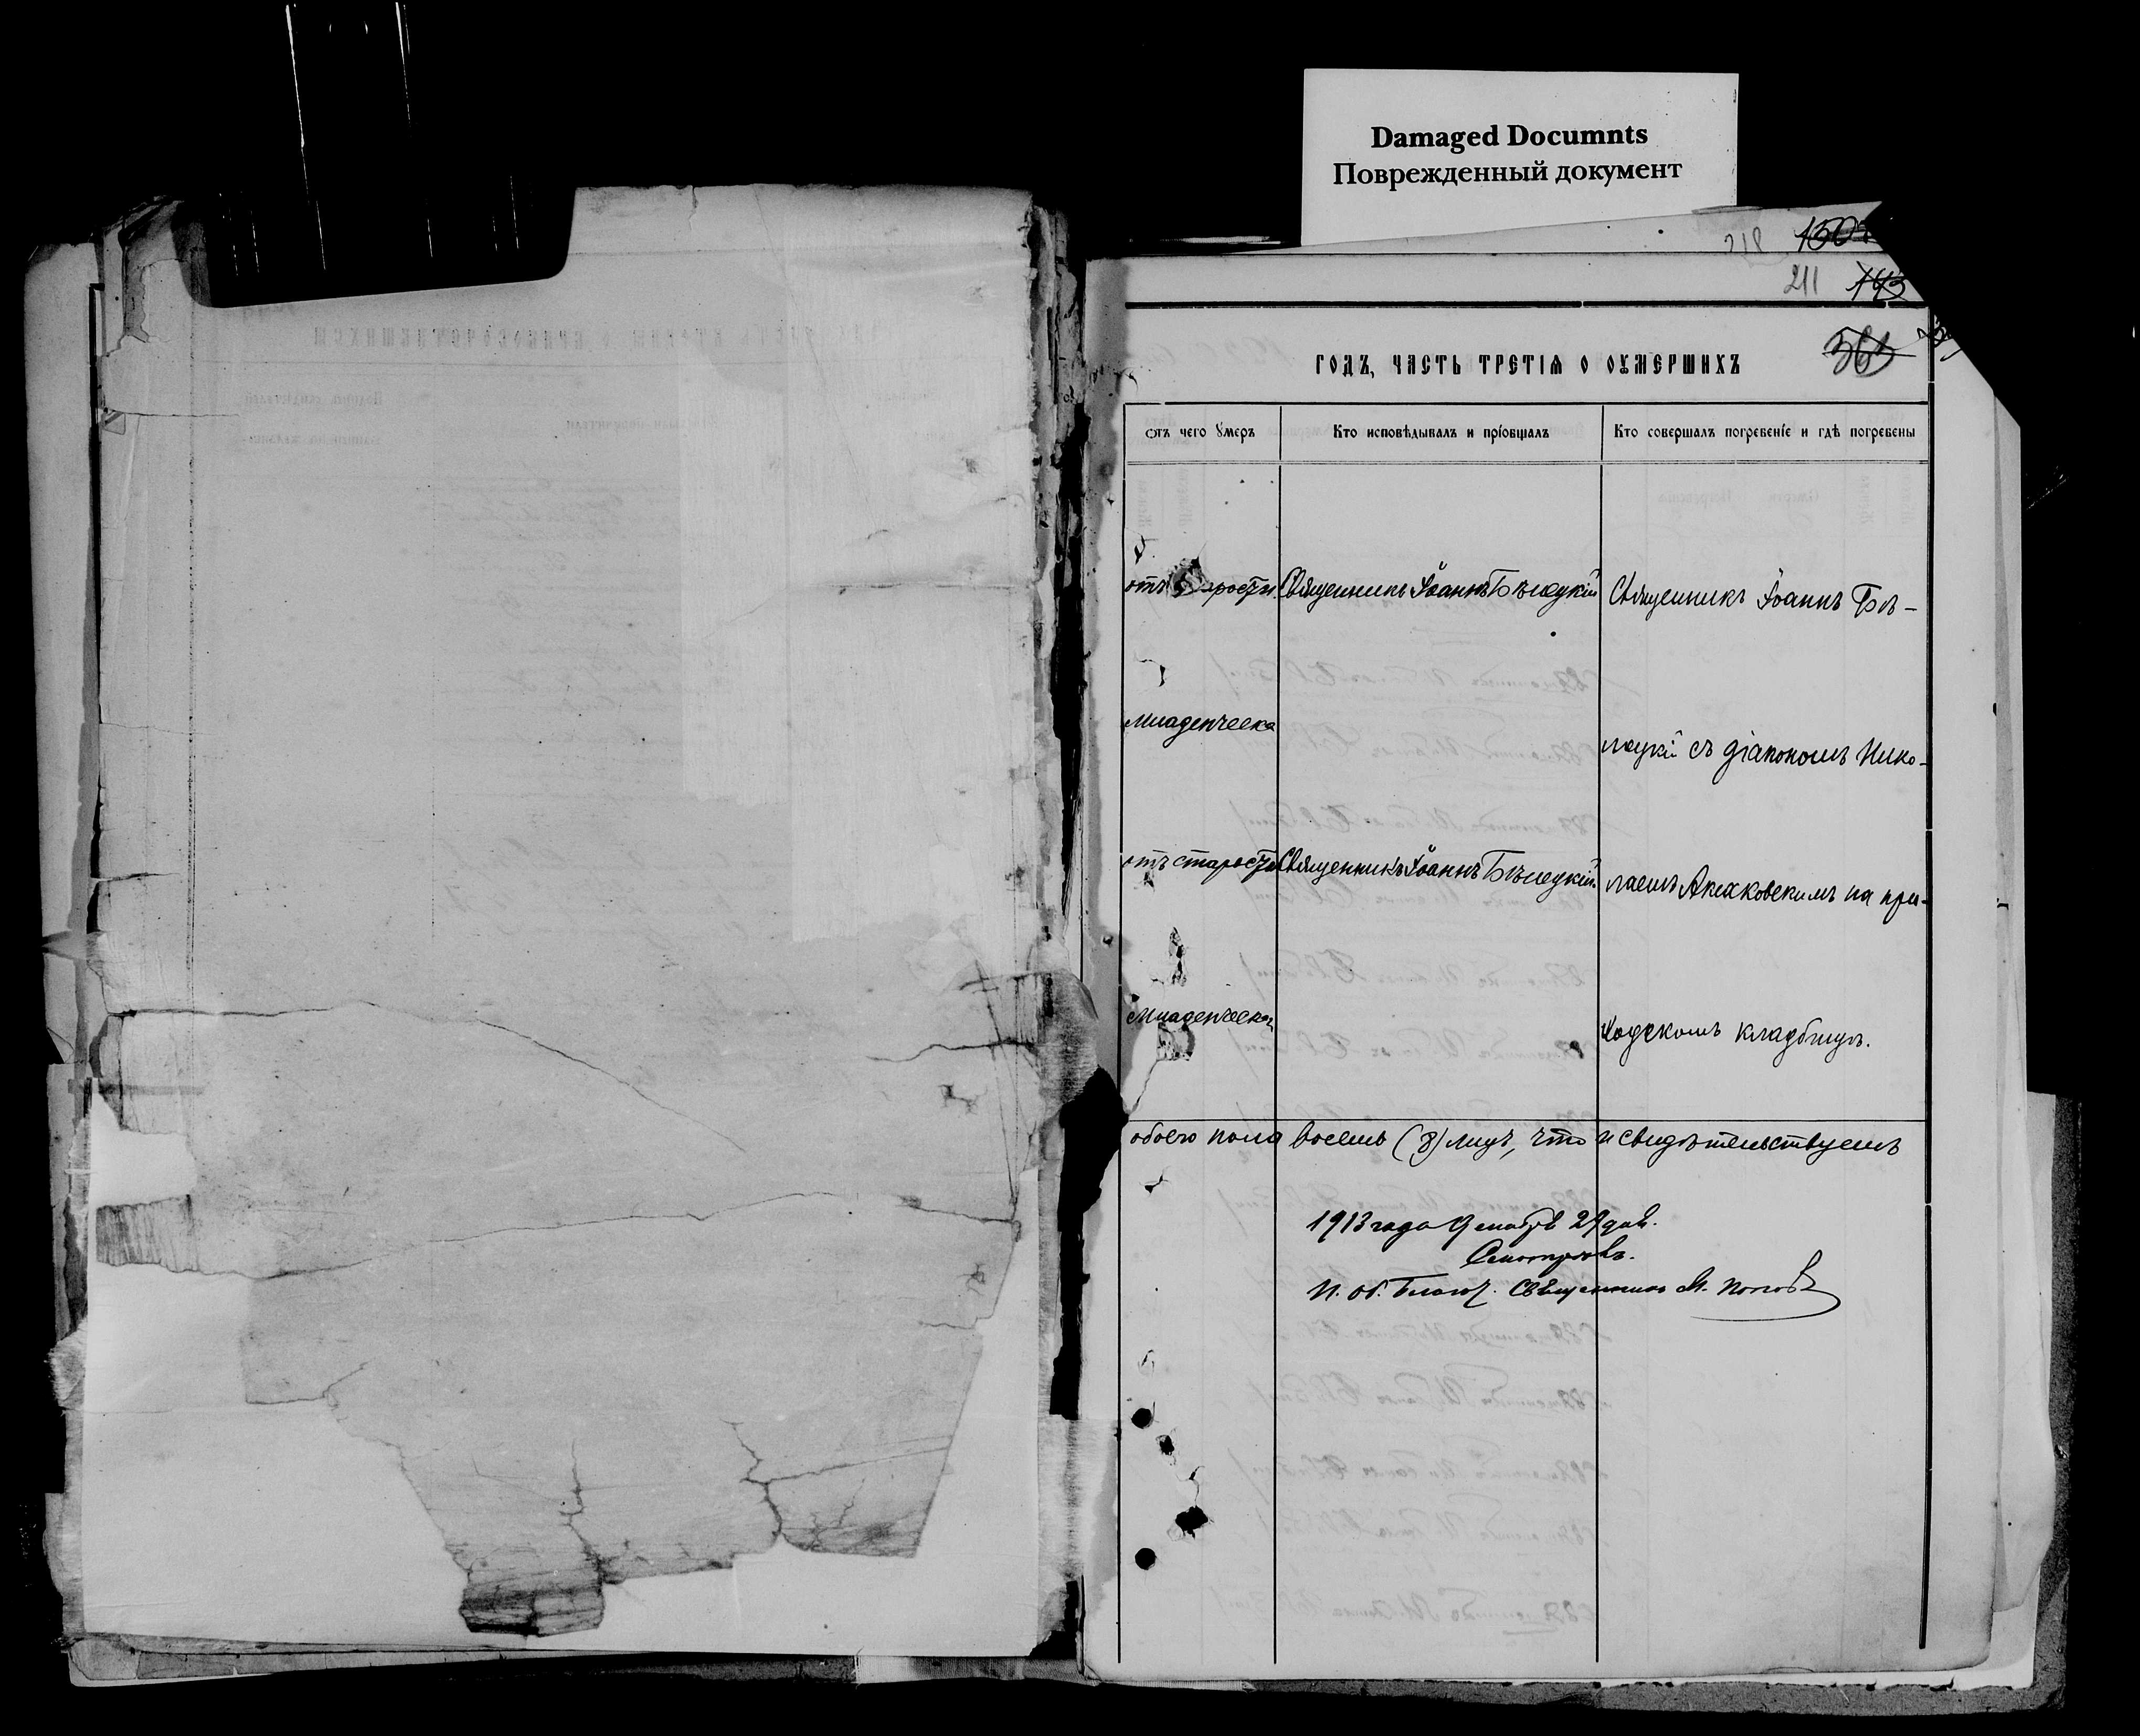 Damaged Documnts
Поврежденный документ
218
211 193
363
годъ, часть третіѧ о оумершихъ
отъ чего умеръ
Кто исповѣдывалъ и пріобщалъ
Кто совершалъ погребеніе и гдѣ погребены
отъ старости. Священникъ Іоаннъ Бѣлецкій Священникъ Іоаннъ Бѣ-
младенческа
лецкій съ діакономъ Нико-
отъ старости Священникъ Іоаннъ Бѣлецкій. лаемъ на при-
младенческа
ходскомъ кладбищѣ.
обоего пола восемь (8) лицъ, что и свидѣтельствуемъ
1913 года Декабрѣ 29 дня.
Смотрѣлъ.
И. об. Благоч. Священникъ М. Поповъ